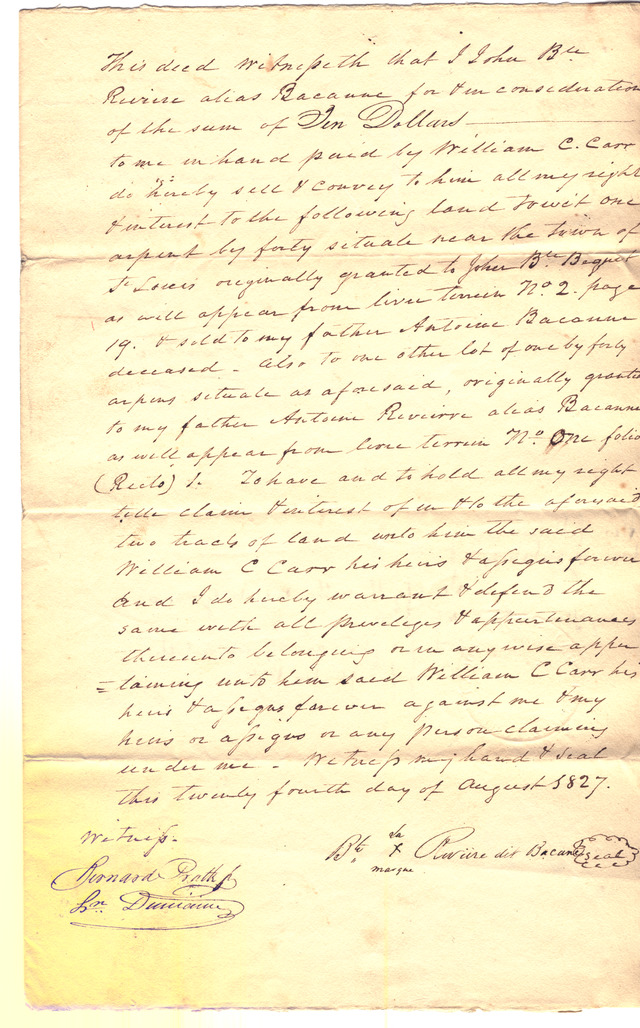 This deed witnesseth that I John Bte
Reviere alias Bacanne for & in consideration
of the sum of Ten Dollars
to me in hand paid by William C. Carr
do hereby sell & convey to him all my right
& interest to the following land to wit one
arpent by forty situate near the town of
St Louis originally granted to John Bte Bequet
as will appear from livre terrein No. 2. page
19. & sold to my father Antoine Bacanne
deceased - Also to one other lot of one by forty
arpens situate as aforesaid, originally granted
to my father Antoine Revierre alias Bacanne
as will appear from livre terrein No. One folio
(Recto) 5. To have and to hold all my right
title claim & interest of in & to the aforesaid
two tracts of land unto him the said
William C Carr his heirs & assigns forever
And I do hereby warrant & defend the
same with all priveleges & appurtenances
thereunto belonging or in any wise apper
=taining unto him said William C Carr his
heirs & assigns forever against me & my
heirs or assigns or any person claiming
under me - Witness my hand & seal
this twenty fourth day of August 1827.
Witness.
Bte sa X marque Rivière dit Bacane seal
Bernard Pratte